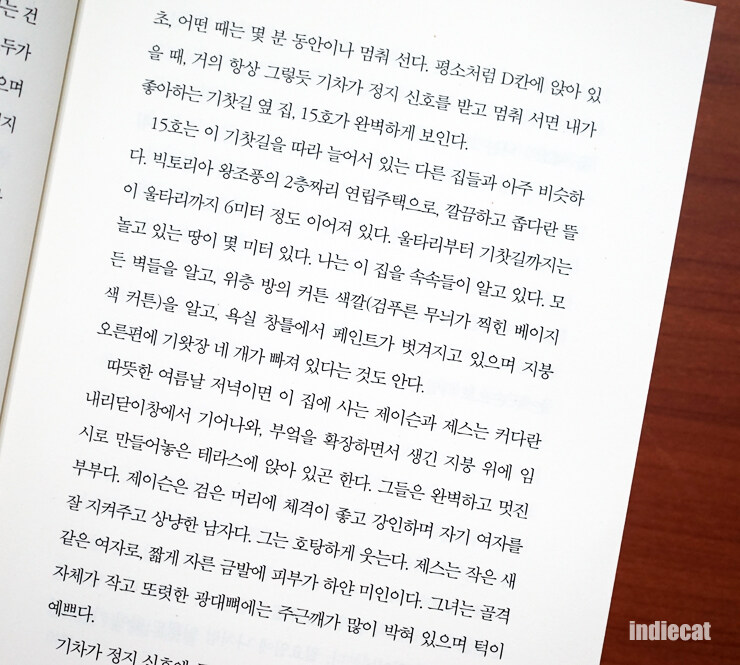 는 건
두가
으며
지
초, 어떤 때는 몇 분 동안이나 멈춰 선다. 평소처럼 D칸에 앉아 있
을 때, 거의 항상 그렇듯 기차가 정지 신호를 받고 멈춰 서면 내가
좋아하는 기찻길 옆 집, 15호가 완벽하게 보인다.
15호는 이 기찻길을 따라 늘어서 있는 다른 집들과 아주 비슷하
다. 빅토리아 왕조풍의 2층짜리 연립주택으로, 깔끔하고 좁다란 뜰
이 울타리까지 6미터 정도 이어져 있다. 울타리부터 기찻길까지는
놀고 있는 땅이 몇 미터 있다. 나는 이 집을 속속들이 알고 있다. 모
든 벽들을 알고, 위층 방의 커튼 색깔(검푸른 무늬가 찍힌 베이지
색 커튼)을 알고, 욕실 창틀에서 페인트가 벗겨지고 있으며 지붕
오른편에 기왓장 네 개가 빠져 있다는 것도 안다.
따뜻한 여름날 저녁이면 이 집에 사는 제이슨과 제스는 커다란
내리닫이창에서 기어나와, 부엌을 확장하면서 생긴 지붕 위에 임
시로 만들어놓은 테라스에 앉아 있곤 한다. 그들은 완벽하고 멋진
부부다. 제이슨은 검은 머리에 체격이 좋고 강인하며 자기 여자를
잘 지켜주고 상냥한 남자다. 그는 호탕하게 웃는다. 제스는 작은 새
같은 여자로, 짧게 자른 금발에 피부가 하얀 미인이다. 그녀는 골격
자체가 작고 또렷한 광대뼈에는 주근깨가 많이 박혀 있으며 턱이
예쁘다.
기차가 정지 신호에
indiecat